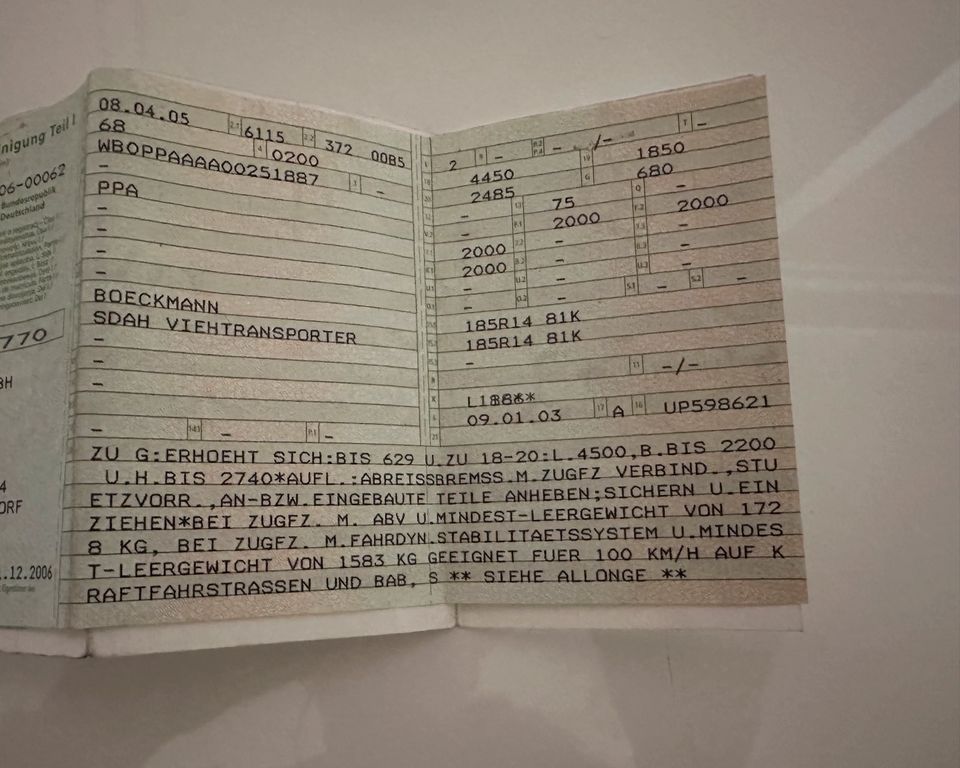 nigung Teil I
06-00062
Bundesrepublik
Deutschland
770
BH
4
ORF
.12.2006
08.04.05 2.1 6115 2.2 372 00B5
68 4 0200
WB0PPAAAA00251887 3 -
-
PPA
-
-
-
-
BOECKMANN
SDAH VIEHTRANSPORTER
-
-
-
- 14.1 - P.1 -
2 9 - P.2 P.4 - /- T -
4450 19 1850
2485 G 680
- 13 75 Q -
- 2000 2000
2000 -
2000 - -
- - -
- - S.1 - S.2 -
185R14 81K
185R14 81K
- 11 -/-
09.01.03 17 A 16 UP598621
ZU G:ERHOEHT SICH:BIS 629 U.ZU 18-20:L.4500,B.BIS 2200
U.H.BIS 2740*AUFL.:ABREISSBREMSS.M.ZUGFZ VERBIND.,STU
ETZVORR.,AN-BZW.EINGEBAUTE TEILE ANHEBEN;SICHERN U.EIN
ZIEHEN*BEI ZUGFZ. M. ABV U.MINDEST-LEERGEWICHT VON 172
8 KG, BEI ZUGFZ. M.FAHRDYN.STABILITAETSSYSTEM U.MINDES
T-LEERGEWICHT VON 1583 KG GEEIGNET FUER 100 KM/H AUF K
RAFTFAHRSTRASSEN UND BAB, S ** SIEHE ALLONGE **